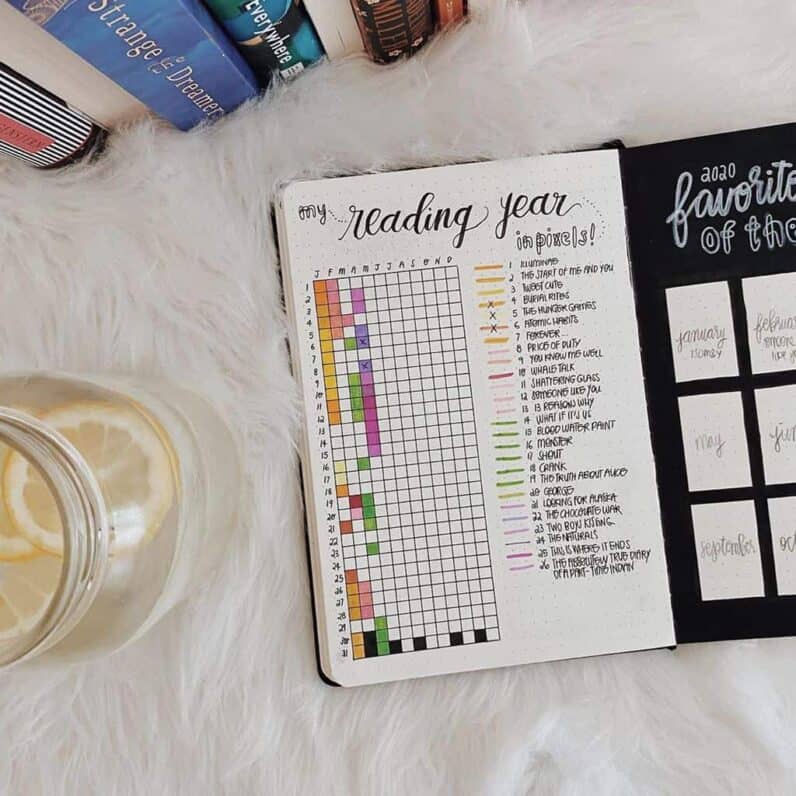 Strange the Dreamer
Everywhere
my reading year
in pixels!
J F M A M J J A S O N D
1
2
3
4
5
6
7
8
9
10
11
12
13
14
15
16
17
18
19
20
21
22
23
25
26
27
28
29
30
31
1 ILLUMINAE
2 THE START OF ME AND YOU
3 TWEET CUTE
4 BURIAL RITES
5 THE HUNGER GAMES
6 ATOMIC HABITS
7 FOREVER...
8 PRICE OF DUTY
9 YOU KNOW ME WELL
10 WHALE TALK
11 SHATTERING GLASS
12 SOMEONE LIKE YOU
13 13 REASONS WHY
14 WHAT IF IT'S US
15 BLOOD WATER PAINT
16 MONSTER
17 SHOUT
18 CRANK
19 THE TRUTH ABOUT ALICE
20 GEORGE
21 LOOKING FOR ALASKA
22 THE CHOCOLATE WAR
23 TWO BOYS KISSING
24 THE NATURALS
25 THIS IS WHERE IT ENDS
26 THE ABSOLUTELY TRUE DIARY
OF A PART-TIME INDIAN
2020
favorite
of the
january
februar
may
jun
september
oct